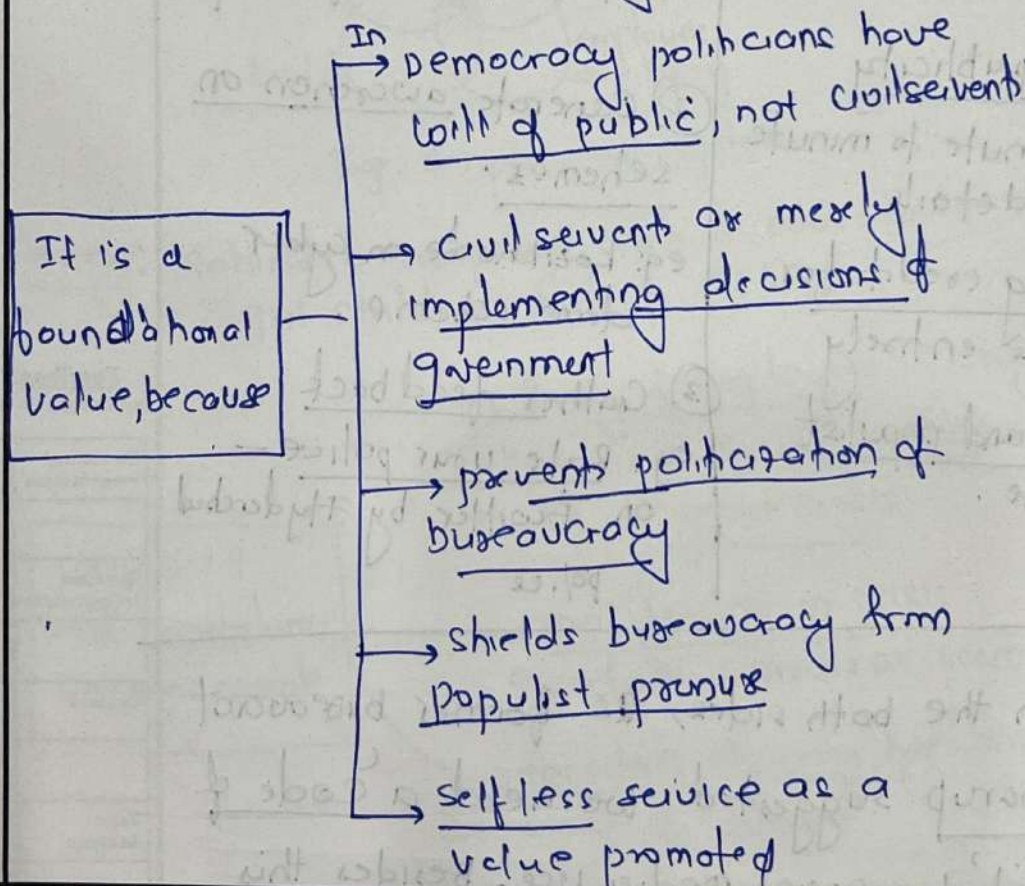 It is a
foundational
value, because
In
→ Democracy politicians have
will of public, not civilservents
→ Civil servents or merely
implementing decisions of
government
→ prevents politicization of
bureaucracy
→ shields bureaucracy from
populist pressure
→ selfless service as a
value promoted